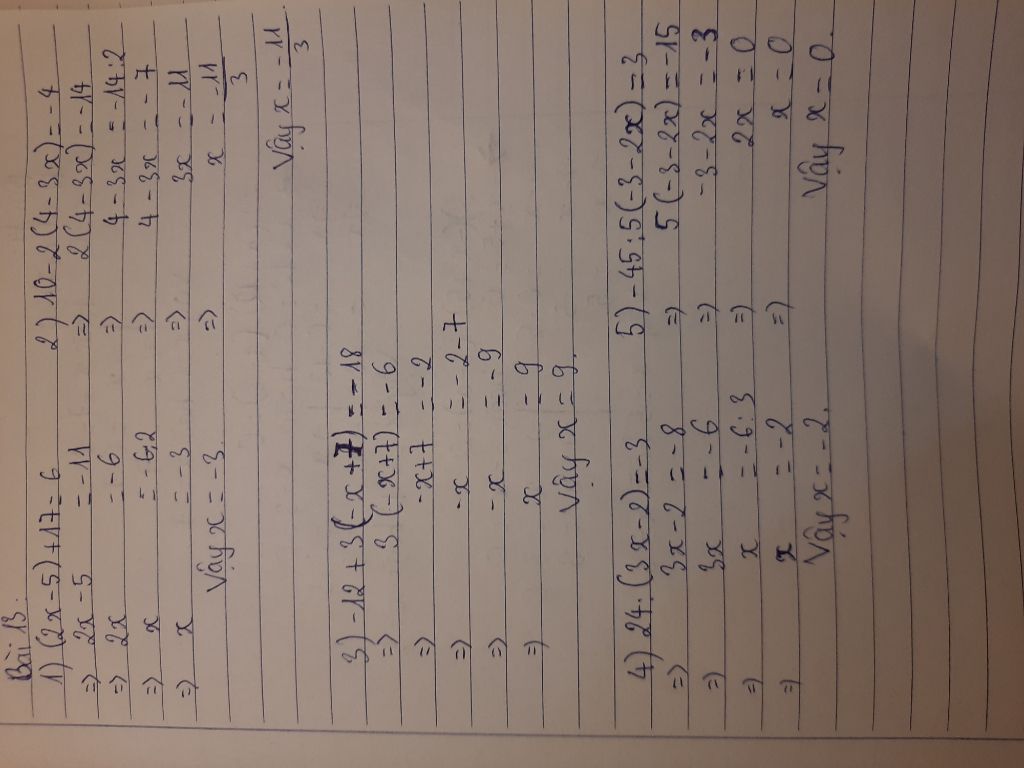 Bài 13.
1) (2x-5)+17=6
=) 2x-5 = -11
=) 2x = -6
=) x = -6:2
=) x = -3
Vậy x = -3.
2) 10-2(4-3x) = -4
=) 2(4-3x) = 14
=) 4-3x = -14:2
=) 4-3x = -7
=) 3x = -11
=) x = -11/3
Vậy x = -11/3
3) -12+3(-x+7) = -18
=) 3(-x+7) = -6
=) -x+7 = -2
=) -x = -2-7
=) -x = -9
=) x = 9
Vậy x = 9.
4) 24:(3x-2) = -3
=) 3x-2 = -8
=) 3x = -6
=) x = -6:3
=) x = -2
Vậy x = -2.
5) -45:5(-3-2x) = 3
=) 5(-3-2x) = -15
=) -3-2x = -3
=) 2x = 0
=) x = 0
Vậy x = 0.